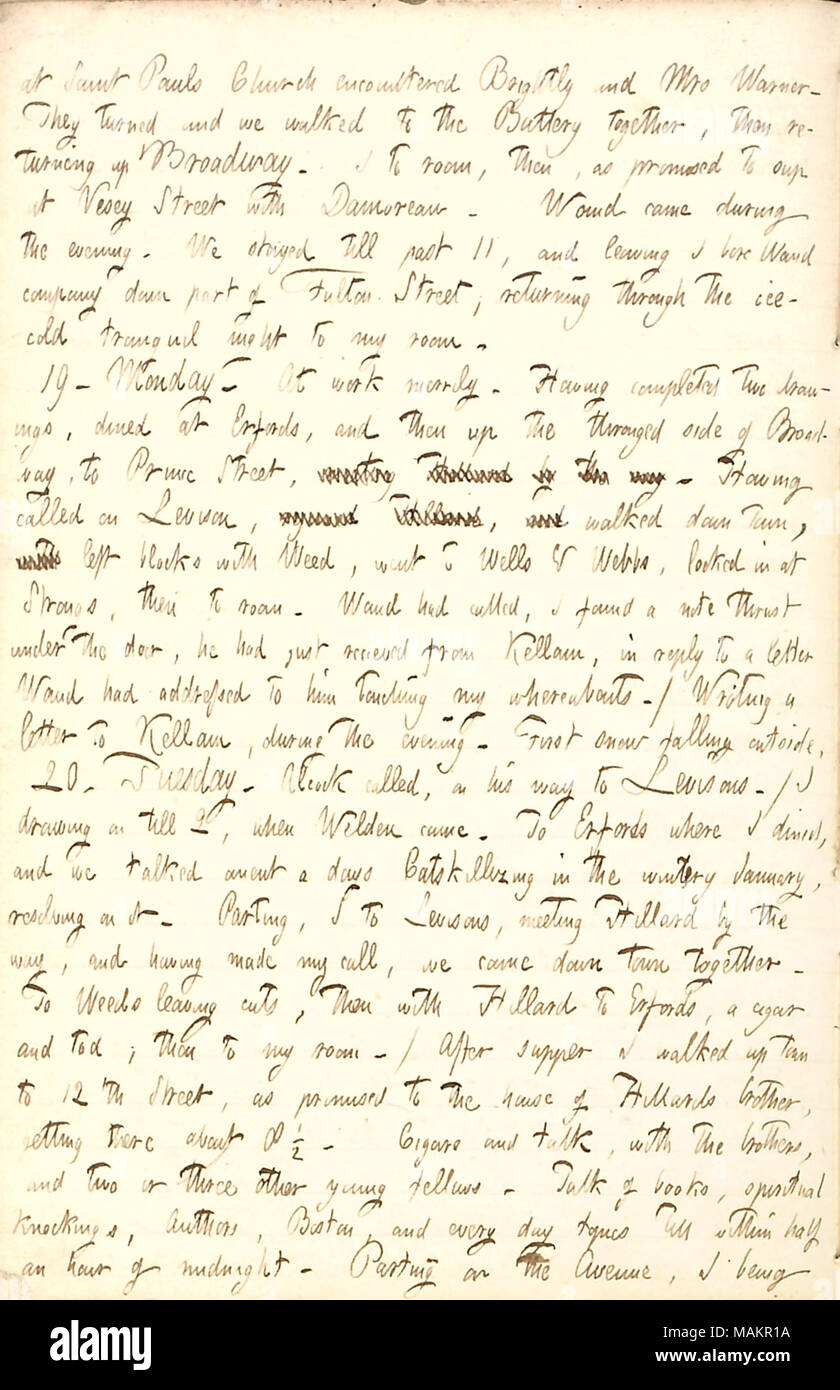 at Saint Pauls Church encountered Brightly and Mrs Warner-
They turned and we walked to the Battery together, then re-
turning up Broadway. I to room, then, as promised to sup
at Vesey Street with Damoreau. Wand came during
the evening. We stayed till past 11, and leaving I bore Wand
company down part of Fulton Street, returning through the ice-
cold tranquil night to my room.
19. Monday. At work merrily. Having completed two draw-
ings, dined at Erfords, and then up the thronged side of Broad-
way, to Prince Street, meeting Hillard by the way. Having
called on Levison, Hillard, and walked down town,
left blocks with Weed, went to Wells & Webbs, looked in at
Strongs, then to room. Wand had called, I found a note thrust
under the door, he had just recieved from Kellam, in reply to a letter
Wand had addressed to him touching my whereabouts. / Writing a
letter to Kellam, during the evening. First snow falling outside,
20. Tuesday. Alcock called, on his way to Levisons. / I
drawing on till 2, when Welden came. To Erfords where I dined,
and we talked anent a days Catskilling in the wintery January,
resolving on it. Parting, I to Levisons, meeting Hillard by the
way, and having made my call, we came down town together.
To Weeds leaving cuts, then with Hillard to Erfords, a cigar
and tod; then to my room. / After supper I walked up town
to 12th Street, as promised to the house of Hillards brother,
getting there about 8 1/2. Cigars and talk, with the brothers,
and two or three other young fellows. Talk of books, spiritual
knockings, Authors, Boston, and every day topics till within half
an hour of midnight. Parting on the Avenue, I being
alamy
Image ID: MAKR1A
www.alamy.com